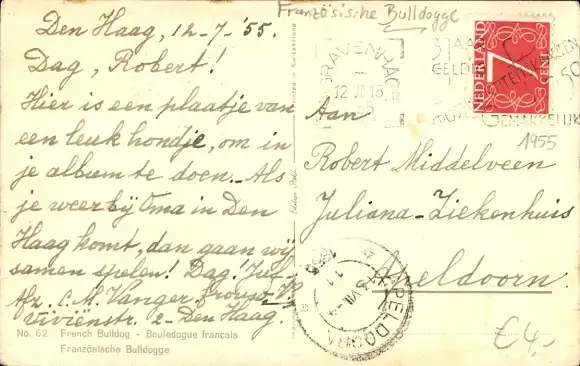 Französische Bulldogge
Den Haag, 12-7-'55.
Dag, Robert!
Hier is een plaatje van
een leuk hondje, om in
je album te doen. Als
je weer bij Oma in Den
Haag komt, dan gaan wij
samen spelen! Dag.
Afz. C. M. Vanger
2 - Den Haag.
No. 62 French Bulldog - Bouledogue français
Französische Bulldogge
NEDERLAND
7
CENT
GRAVENHAGE
12 VII 15
GELD
GEMAKKELIJK
1955
Aan
Robert Middelveen
Juliana-Ziekenhuis
Apeldoorn.
APELDOORN
1955
€4,-